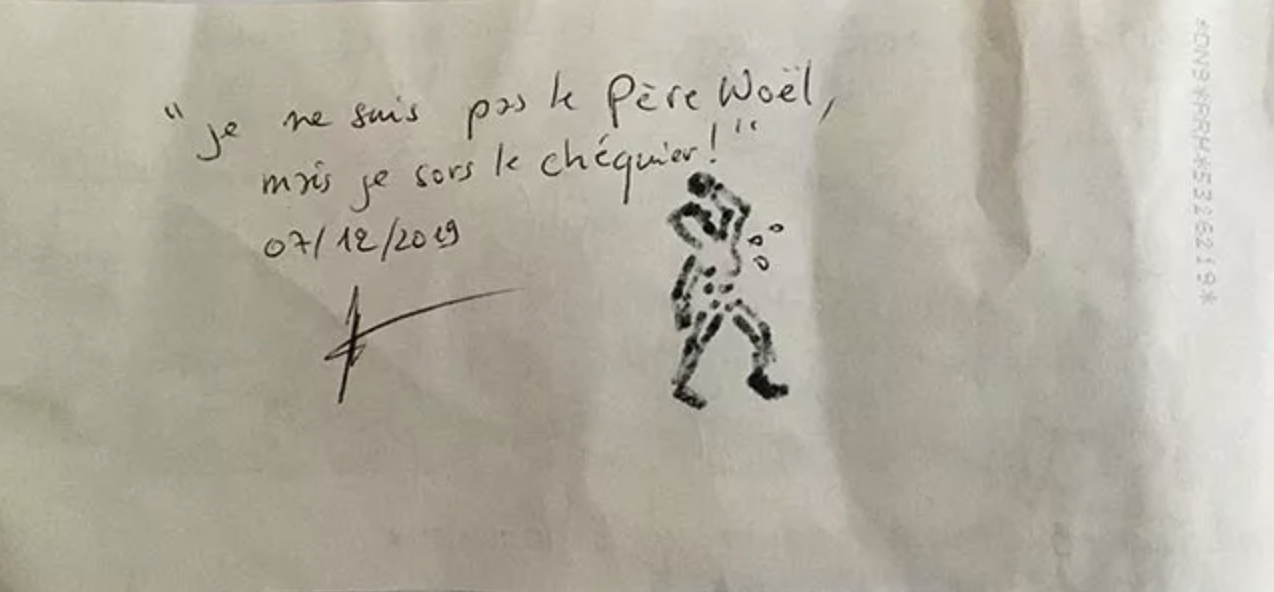 "je ne suis pas le Père Noël,
mais je sors le chéquier!"
07/12/2019
*CN9*ARRM*5326219*